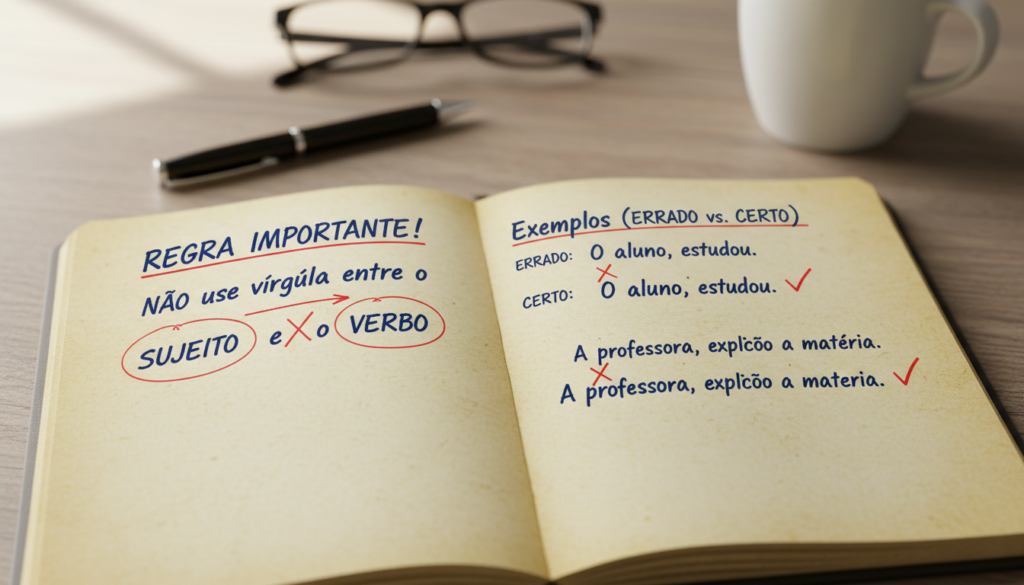 REGRA IMPORTANTE!
NÃO use vírgúla entre o
SUJEITO e X o VERBO
Exemplos (ERRADO vs. CERTO)
ERRADO: O aluno, estudou.
CERTO: O aluno, estudou.
A professora, explicõo a matéria.
A professora, explicõo a materia.